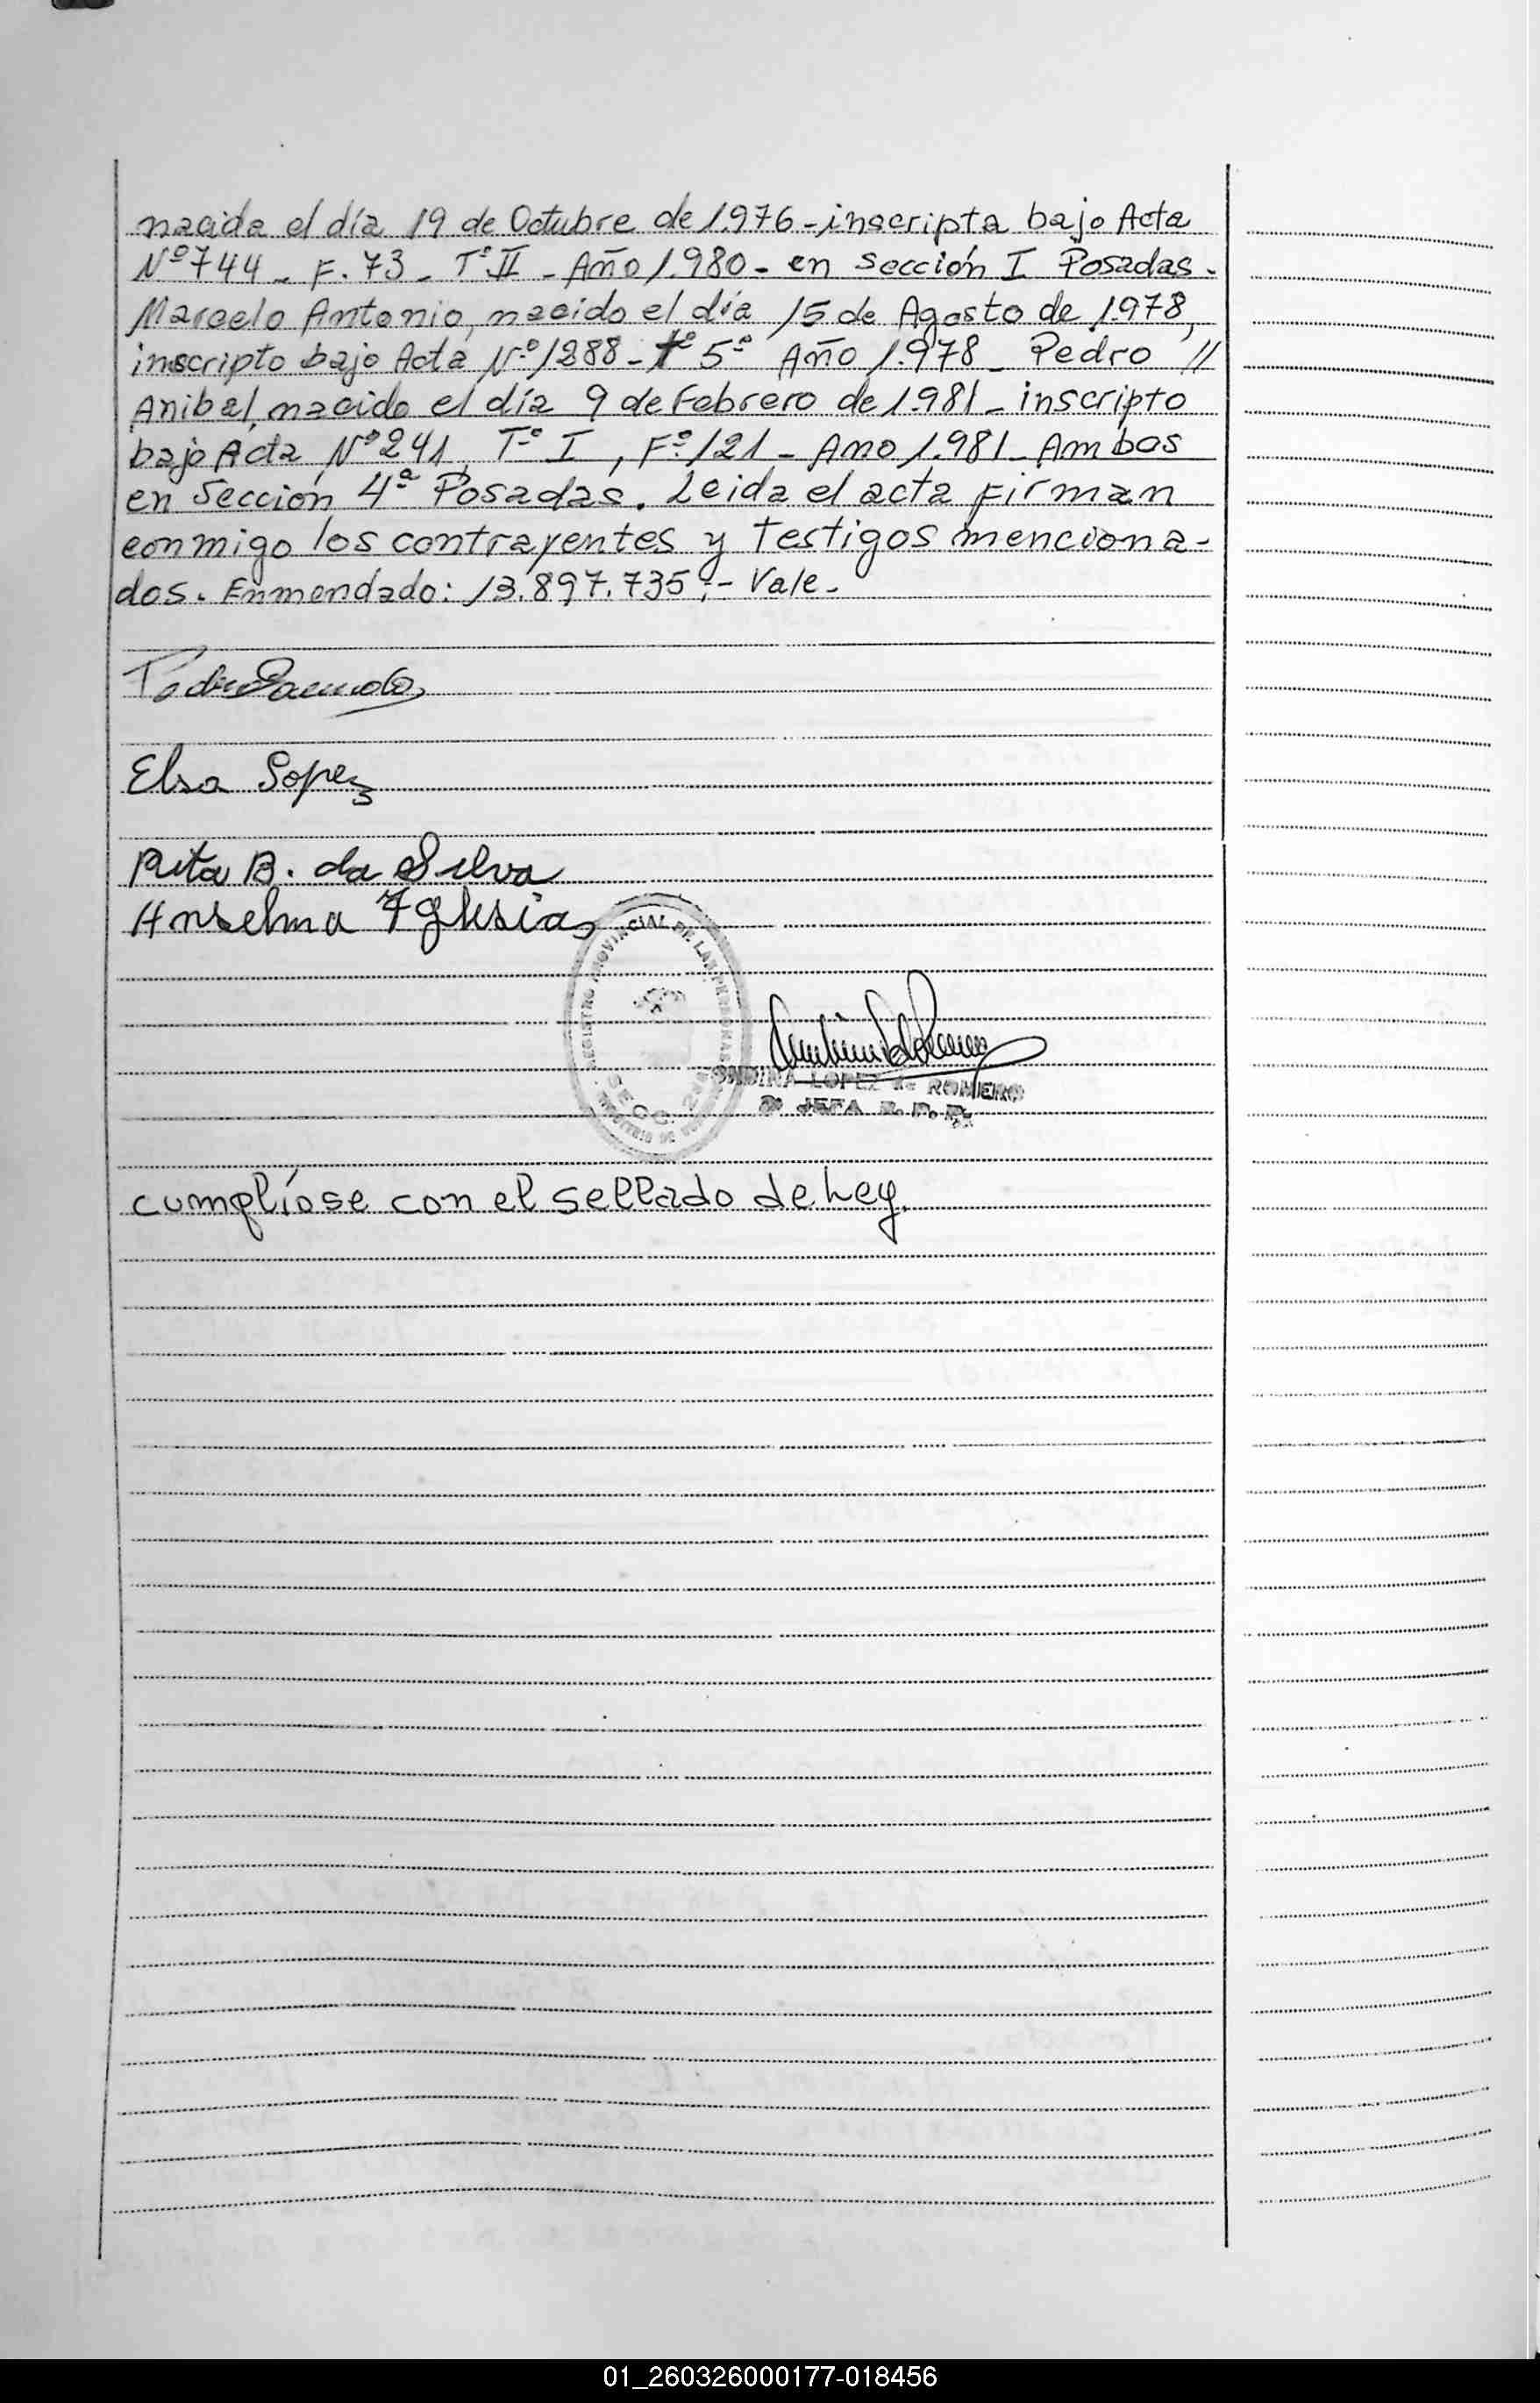 nacida el día 19 de Octubre de 1.976 - inscripta bajo Acta
Nº 744 - F. 73 - Tº II - Año 1.980 - en sección I Posadas -
Marcelo Antonio, nacido el día 15 de Agosto de 1.978,
inscripto bajo Acta Nº 1288 - tº 5º Año 1.978 - Pedro //
Anibal, nacido el día 9 de Febrero de 1.981 - inscripto
bajo Acta Nº 241, Tº I, Fº 121 - Año 1.981 - Ambos
en Sección 4ª Posadas. Leida el acta firman
conmigo los contrayentes y testigos menciona-
dos. Enmendado: 13.897.735,- Vale.
Pedro
Elsa Lopez
Rita B. da Silva
Anselma Yglesias
REGISTRO PROVINCIAL DE LAS PERSONAS
SECC. 2ª
LOPEZ de ROMERO
2º JEFA R. P. P.
cumplíose con el sellado de Ley.
01_260326000177-018456